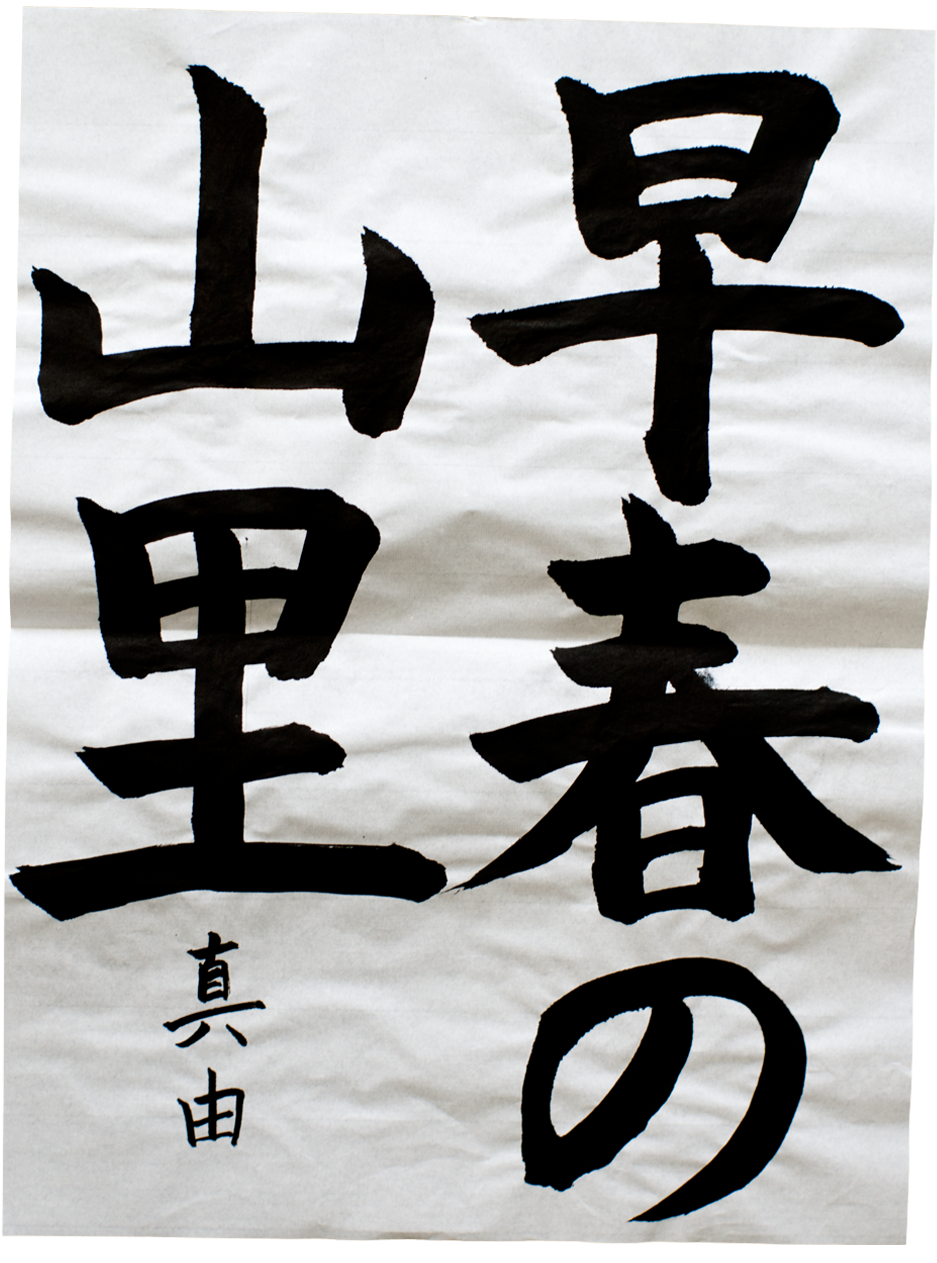 早春の
山里
真由